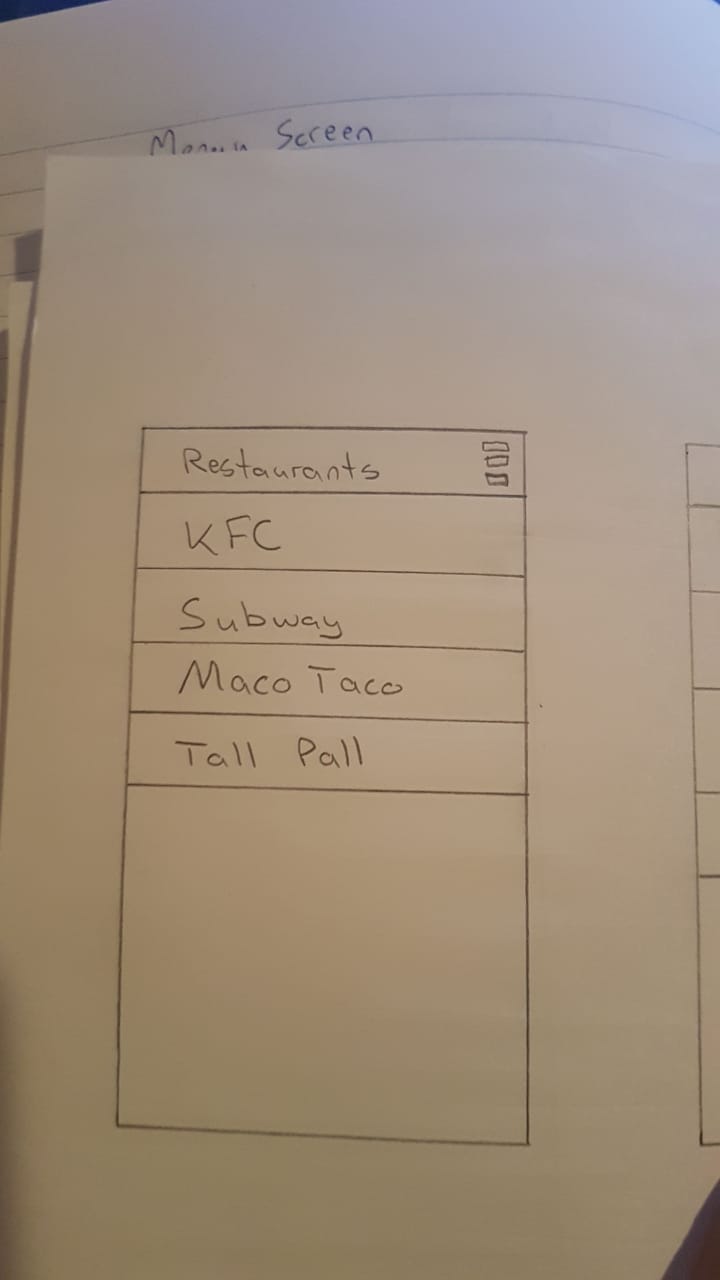 Screen
Restaurants
KFC
Subway
Maco Taco
Tall Pall